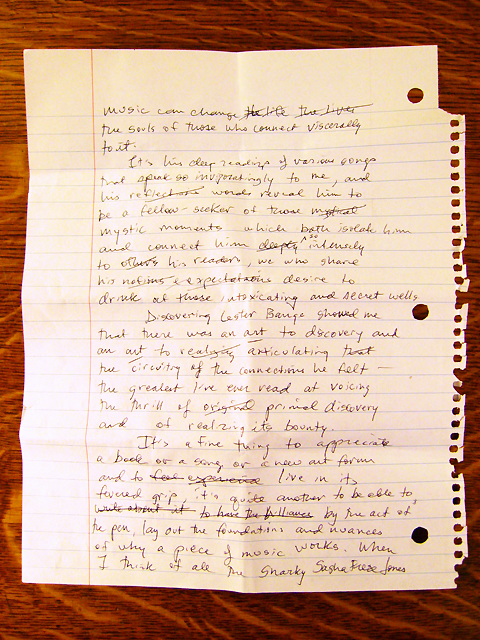 music can change the life the lives
the souls of those who connect viscerally
to it.
It's his deep readings of various songs
that speak so invigoratingly to me, and
his reflections words reveal him to
be a fellow-seeker of those mystical
mystic moments which both isolate him
and connect him deeply so intensely
to others his readers, we who share
his notions & expectations desire to
drink at those intoxicating and secret wells
Discovering Lester Bangs showed me
that there was an art to discovery and
an art to realizing articulating that
the circuitry of the connections he felt —
the greatest I've ever read at voicing
the thrill of original primal discovery
and of realizing its bounty.
It's a fine thing to appreciate
a book or a song or a new art form
and to feel experience live in its
fevered grip, it's quite another to be able to,
write about it to have the brilliance by the act of
the pen, lay out the foundations and nuances
of why a piece of music works. When
I think of all the snarky Sasha Frere Jones